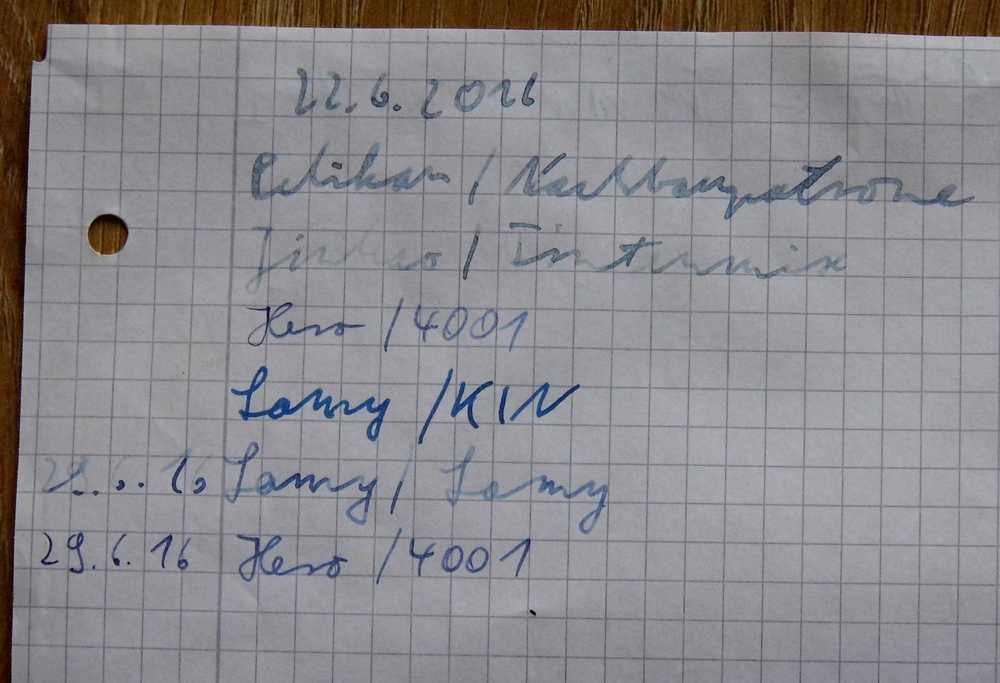 22.6.2016
Pelikan / Nachbaupatrone
Jinhao / Tintenmix
Hero / 4001
Lamy / KIN
29.6.16 Lamy / Lamy
29.6.16 Hero / 4001